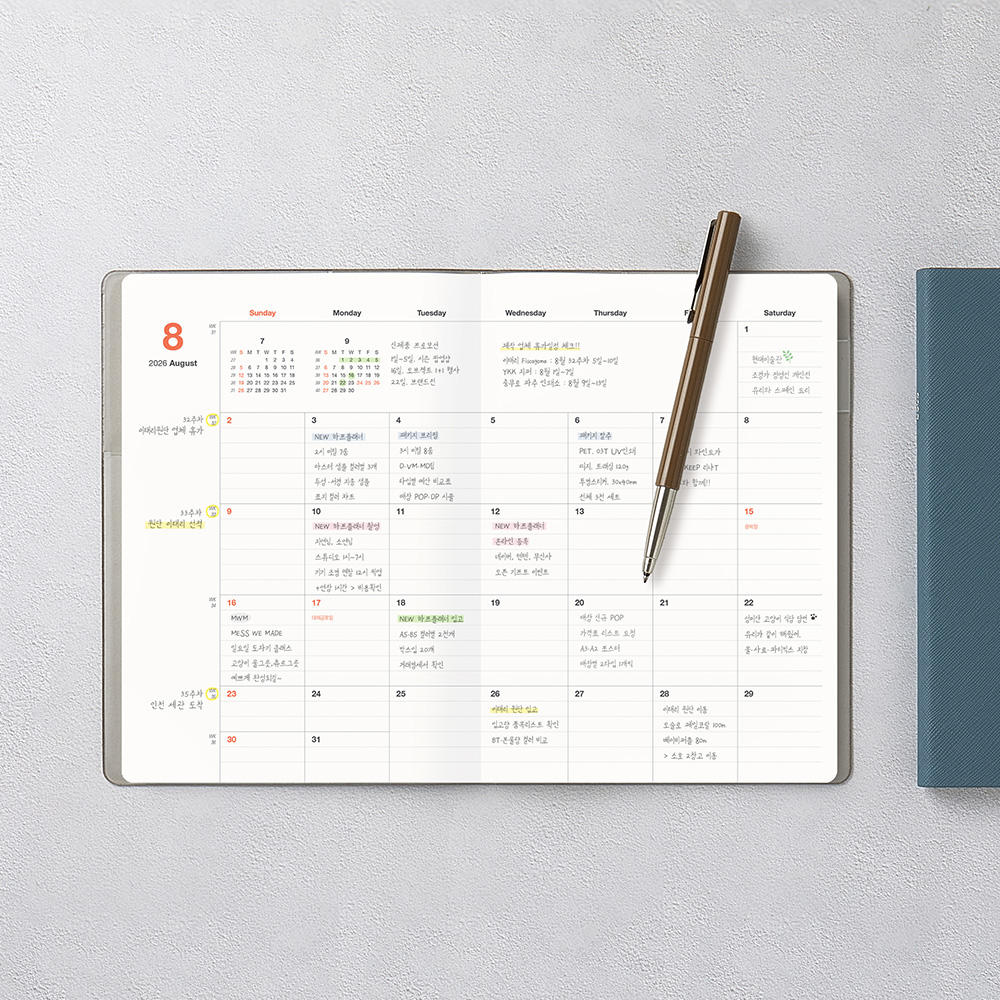 8
2026 August
Sunday
Monday
Tuesday
Wednesday
Thursday
F
Saturday
WK
31
7
WK S M T W T F S
27 1 2 3 4
28 5 6 7 8 9 10 11
29 12 13 14 15 16 17 18
30 19 20 21 22 23 24 25
31 26 27 28 29 30 31
9
WK S M T W T F S
36 1 2 3 4 5
37 6 7 8 9 10 11 12
38 13 14 15 16 17 18 19
39 20 21 22 23 24 25 26
40 27 28 29 30
신제품 프로모션
1일~5일, 시즌 팝업샵
16일, 오브젝트 1+1 행사
22일, 브랜드전
제작 업체 휴가일정 체크!!
이태리 Fiscagomo : 8월 32주차 5일~10일
YKK 지퍼 : 8월 1일~7일
충무로 파주 인쇄소 : 8월 9일~13일
1
현대미술관
조경가 정영선 개인전
유리와 스페인 요리
32주차
이태리원단 업체 휴가
WK
32
2
3
NEW 하프플래너
2시 미팅 3층
마스터 샘플 컬러별 3개
투명·서경 지종 샘플
표지 컬러 차트
4
패키지 브리핑
3시 미팅 8층
D·VM·MD팀
타입별 예산 비교표
매장 POP·DP 시안
5
6
패키지 발주
PET. 03T UV인쇄
띠지. 트레싱 120g
투명스티커. 30x40mm
전체 3천 세트
7
와인요가
KEEP 리사T
와 함께!!
8
33주차
원단 이태리 선적
WK
33
9
10
NEW 하프플래너 촬영
지연님, 소연님
스튜디오 1시~7시
기기 조명 렌탈 12시 픽업
+연장 1시간 > 비용확인
11
12
NEW 하프플래너
온라인 등록
네이버, 텐텐, 무신사
오픈 기프트 이벤트
13
15
광복절
WK
34
16
MWM
MESS WE MADE
일요일 도자기 클래스
고양이 물그릇,츄르그릇
예쁘게 완성되길~
17
대체공휴일
18
NEW 하프플래너 입고
A5·B5 컬러별 2천개
박스입 20개
거래명세서 확인
19
20
매장 신규 POP
가격표 리스트 요청
A3·A2 포스터
매장별 2타입 1개씩
21
22
성미산 고양이 식당 당번
유리가 같이 해줬어.
물·사료·파티믹스 지참
35주차
인천 세관 도착
WK
35
23
24
25
26
이태리 원단 입고
입고량 품목리스트 확인
BT·돈울망 컬러 비교
27
28
이태리 원단 이동
오슬로 페일코랄 100m
베이비퍼플 80m
> 소호 2창고 이동
29
WK
36
30
31